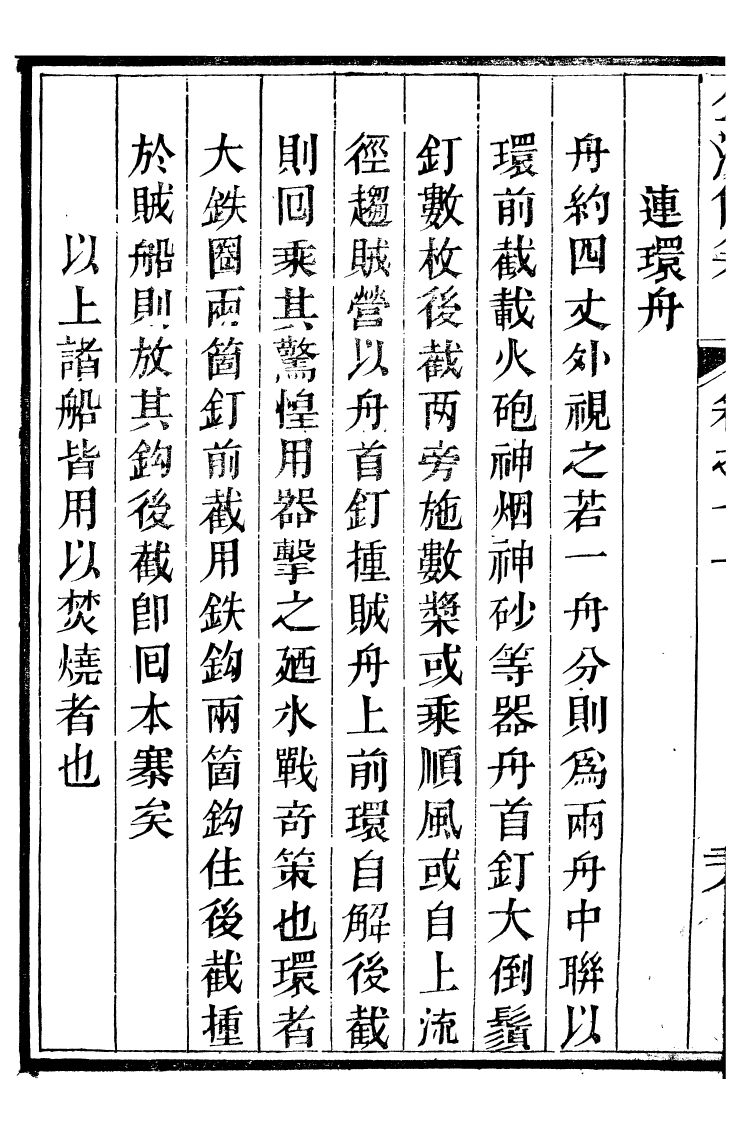 連環舟
舟約四丈外視之若一舟分則爲兩舟中聯以
環前截載火砲神烟神砂等器舟首釘大倒鬚
釘數枚後截两旁施數槳或乘順風或自上流
徑趨賊營以舟首釘撞賊舟上前環自解後截
則囘乘其驚惶用器擊之廼水戰奇策也環者
大鉄圈兩箇釘前截用鉄鈎兩箇鈎住後截撞
於賊船則放其鈎後截卽囘本寨矣
以上諸船皆用以焚燒者也